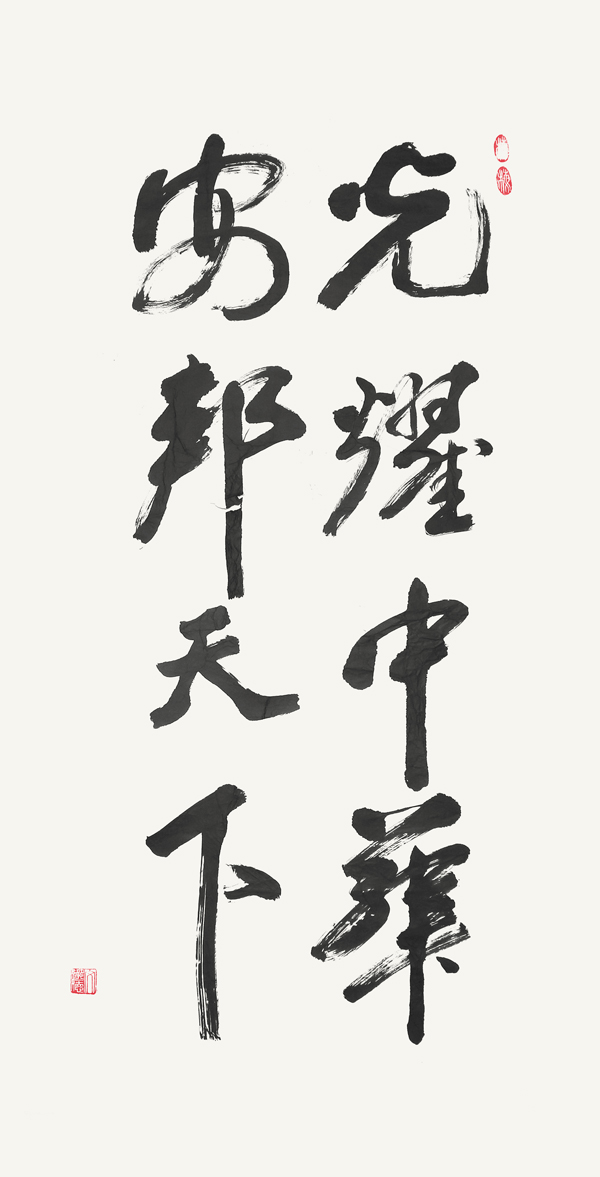 光耀中華
安邦天下